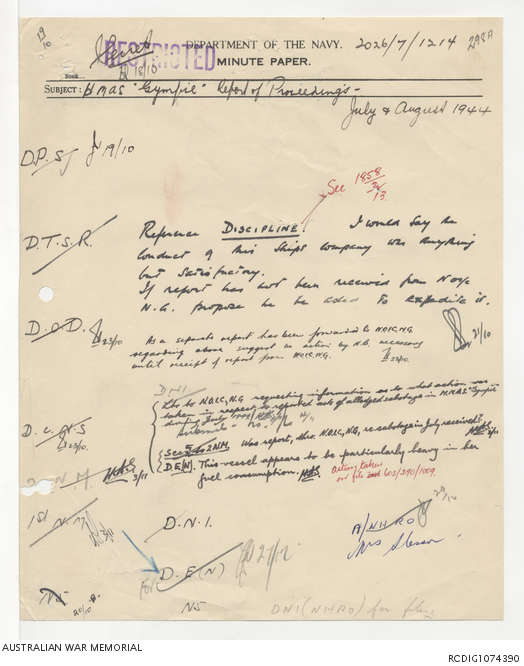 19/10
Secret
RESTRICTED
18/10
DEPARTMENT OF THE NAVY.
2026/7/1214
MINUTE PAPER.
Book
SUBJECT: HMAS "Gympie" Report of Proceedings -
July & August 1944
D.P.S. 19/10
See 1858
13
D.T.S.R.
Reference DISCIPLINE. I would say the
conduct of this ships company was anything
but satisfactory.
If report has not been received from NOIC
N.G. propose he be asked to expedite it.
21/10
D.O.D.
23/10
As a separate report has been forwarded to NOIC.NG
regarding above suggest no action by N.B. necessary
until receipt of report from NOIC.NG.
23/10
DNI
Ltr to NOIC, NG requesting information as to what action was
taken in respect to reported acts of alledged sabotage in H.M.A.S "Gympie"
during July
D.C.N.S
23/10.
Sec to 2NM. Was report, thro. NOIC, NG, re sabotage in July received?
D.E(N). This vessel appears to be particularly heavy in her
fuel consumption.
Action taken
on file 603/290/1009
2.N.M. 3/11
1st N.M.
D.N.I.
A/NHRO
Mrs
D.E(N)
NS
20/10
NS
DNI (NHRO) for
AUSTRALIAN WAR MEMORIAL
RCDIG1074390